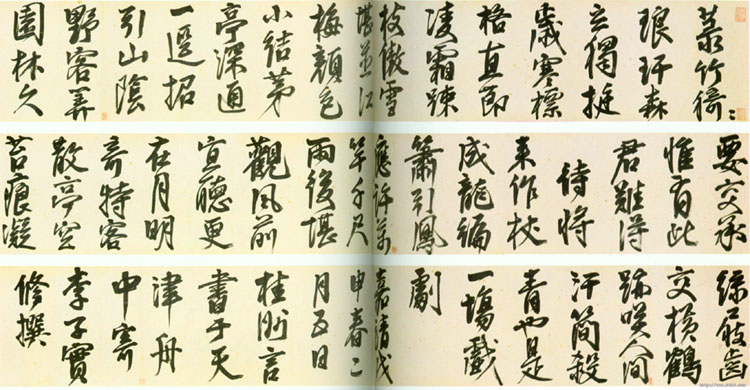 菉竹猗猗
琅玕森
立獨挺
歲寒標
格直節
凌霜踈
枝傲雪
堪並江
梅顏色
小結茅
亭深通
一逕招
引山陰
野客羡
園林久
要交承
惟有此
君難得
待將
來作杖
成龍編
簫引鳳
應許萬
竿千尺
雨後堪
觀風前
宜聽更
在月明
奇特客
散亭空
苔痕凝
綠屐齒
交橫鶴
跡咲人間
汗簡殺
青也是
一場戲
劇
嘉靖戊
申春二
月五日
桂洲言
書于天
津舟
中寄
李子實
修撰